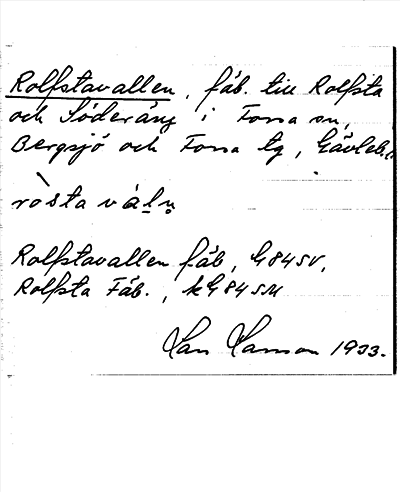 Rolfstavallen, fäb. till Rolfsta
och Söderäng i Forsa sn,
Bergsjö och Forsa tg, Gävleb.
ròsta vàḷṇ
Rolfstavallen fäb, G84SV,
Rolfsta Fäb., kG84SM
1933.